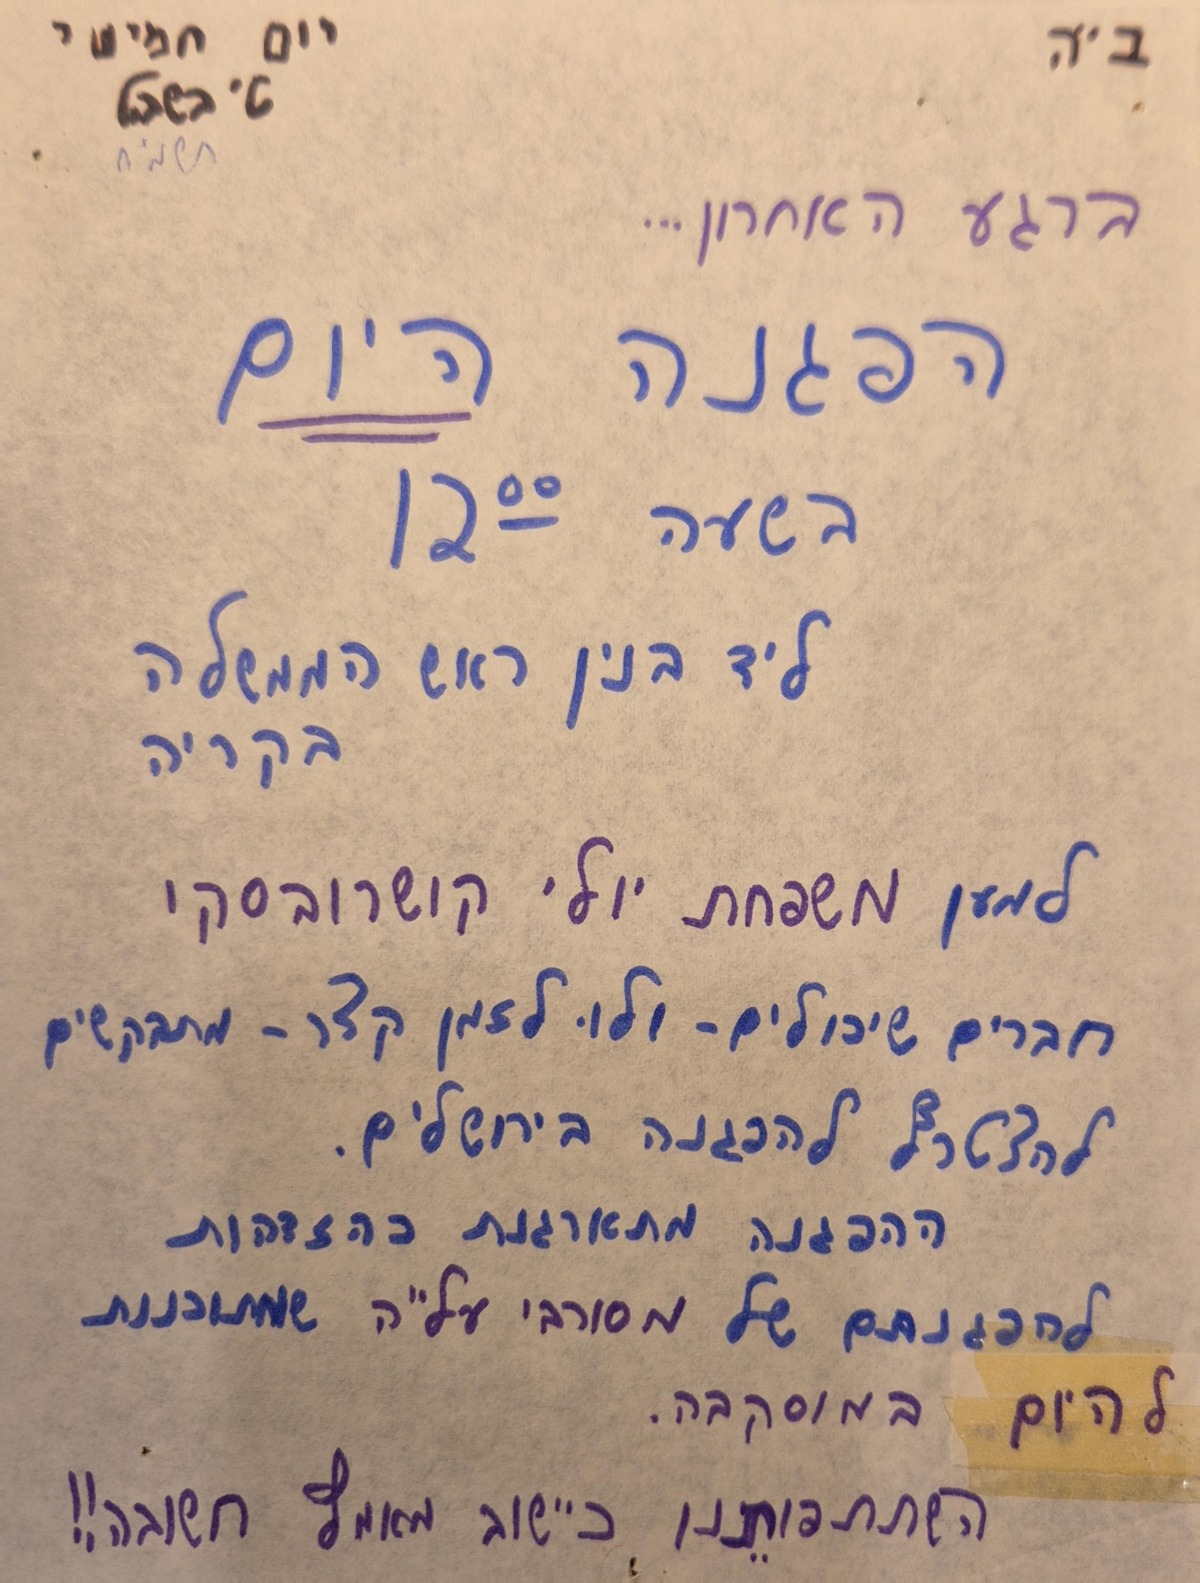 ב"ה
יום חמישי
ט' בשבט
תשמ"ח
ברגע האחרון...
הפגנה היום
בשעה 12⁰⁰
ליד בנין ראש הממשלה
בקריה
למען משפחת יולי קושרובסקי
חברים שיכולים - ולו לזמן קצר - מתבקשים
להצטרף להפגנה בירושלים.
ההפגנה מתארגנת כהזדהות
להפגנתם של מסורבי עליה שמתוכננת
להיום במוסקבה.
השתתפותנו כישוב מאמץ חשובה!!